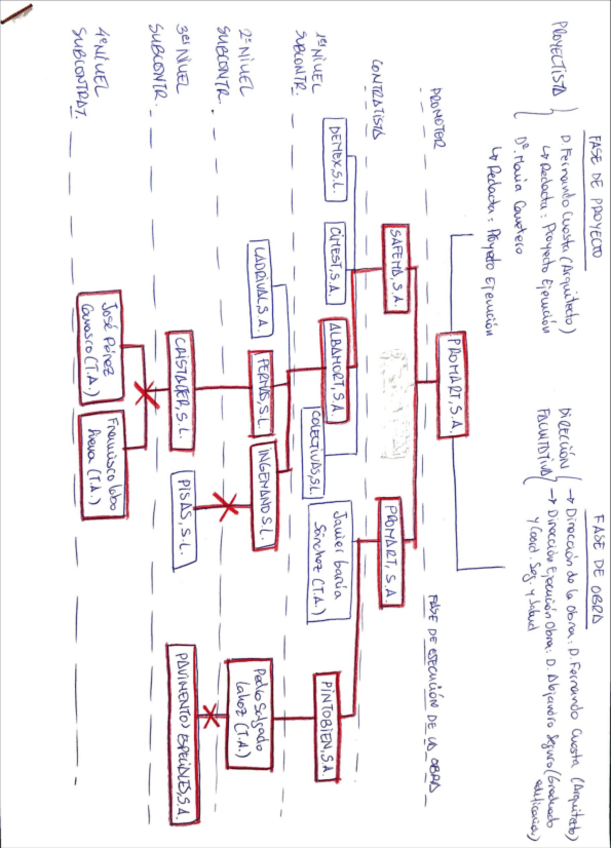 FASE DE PROYECTO
PROYECTISTA
D. Fernando Cuesta (Arquitecto)
↳ Redacta: Proyecto Ejecución
Dª. Maria Carretero
↳ Redacta: Proyecto Ejecución
FASE DE OBRA
DIRECCIÓN
FACULTATIVA
→ Dirección de la obra: D. Fernando Cuesta (Arquitecto)
→ Dirección Ejecución Obra: D. Alejandro Seguro (Graduado
edificación)
y Coord. Seg. y Salud
FASE DE EJECUCIÓN DE LA OBRA
PROMOTOR
PROMART, S.A.
CONTRATISTA
SAFEMA, S.A.
PROMART, S.A.
1er NIVEL
SUBCONTR.
DEMEX, S.L.
CIMEST, S.A.
ALBAMORT, S.A.
COLECTIVAS, S.L.
Javier García
Sánchez (T.A.)
PINTOBIEN, S.A.
2º NIVEL
SUBCONTR.
LADRIVAL S.A.
FERMAS, S.L.
INGEMANO S.L.
Pedro Salgado
Lahoz (T.A.)
3er NIVEL
SUBCONTR.
CRISTALTER, S.L.
PISAS, S.L.
PAVIMENTOS ESPECIALES, S.A.
4º NIVEL
SUBCONTRAT.
José Pérez
Carrasco (T.A.)
Francisco Lobo
(T.A.)